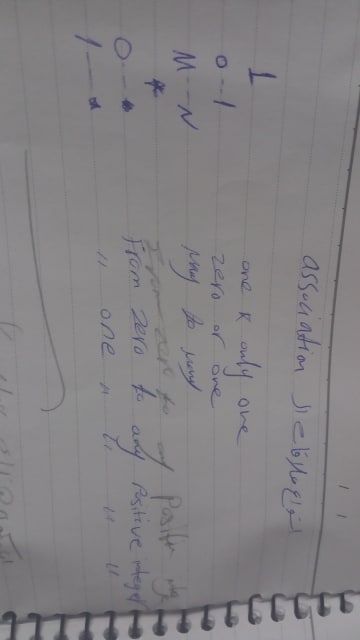 association
1 one & only one
0--1 zero or one
M--N many to many
* From zero to any Positive
0--* From zero to any Positive integer
1--* " one " " " "